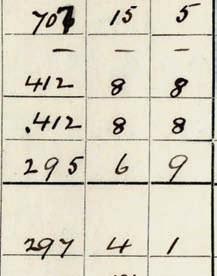 707 15 5
— — —
412 8 8
.412 8 8
295 6 9
297 4 1